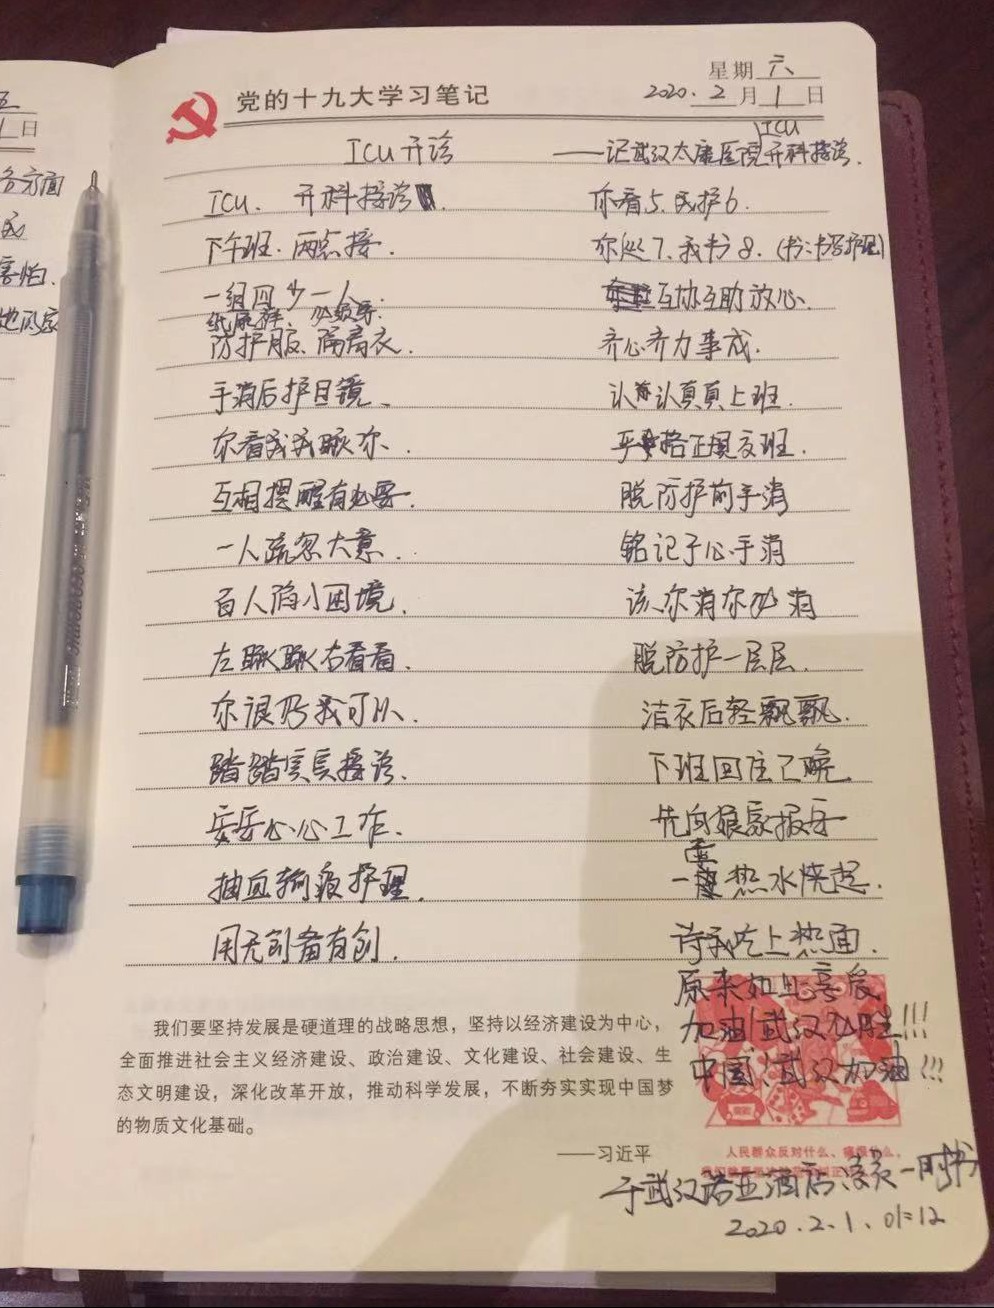 星期六
党的十九大学习笔记
2020.2月1日
ICU开诊 ——记武汉太康医院ICU开科接诊.
ICU. 开科接诊.
下午班.两点接.
一组四少一人.
纸尿裤、必须穿.
防护服、隔离衣.
手消后护目镜、
你看我我瞅你.
互相提醒有必要.
一人疏忽大意.
百人陷入困境.
左瞅瞅右看看.
你很好我可以.
踏踏实实接诊.
安安心心工作.
抽血输液护理.
用无创备有创.
你看5.我护6.
你处7.我书8.(书:书写护理)
互协互助放心.
齐心齐力事成.
认认真真上班.
严格正规交班.
脱防护前手消
铭记于心手消
该你消你必消
脱防护一层层.
洁衣后轻飘飘.
下班回住已晚
先向娘家报平
一壶热水烧起.
待我吃上热面.
原来如此享受
加油!武汉必胜!!!
中国、武汉加油!!!
我们要坚持发展是硬道理的战略思想，坚持以经济建设为中心，
全面推进社会主义经济建设、政治建设、文化建设、社会建设、生
态文明建设，深化改革开放，推动科学发展，不断夯实实现中国梦
的物质文化基础。
——习近平
人民群众反对什么、痛恨什么，
于武汉诺亚酒店、
2020.2.1、01:12
五
1日
各方面
害怕.